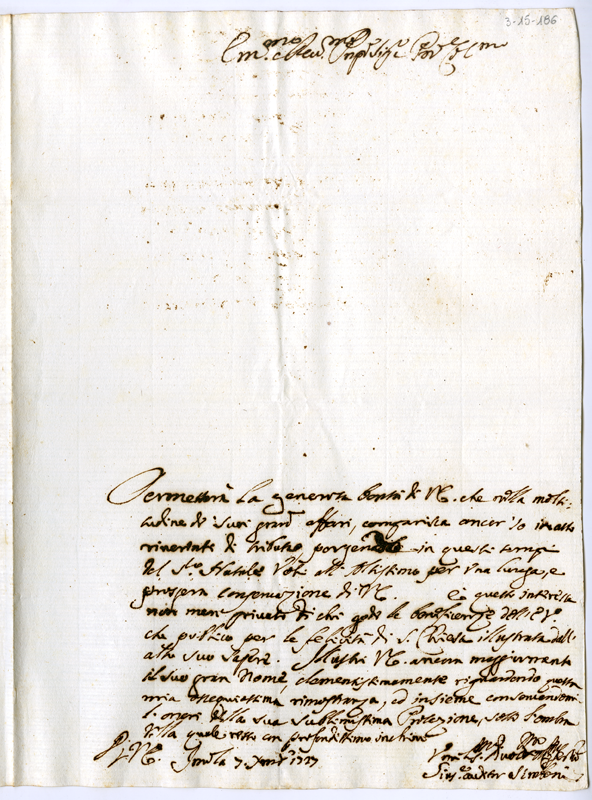 3-15-186
Em.mo e Rev.mo Prnpe Sig.e Pad.e Col.mo
Permetterà la generosa bontà di V.E. che nella molti-
tudine de suoi grand affari, comparisca ancor io in atto
riverente di tributo, porgendo in questi tempi
del S.to Natale Voti all'Altissimo per una lunga, e
prospera conservazione di V.E. e questo interesse
non men privato di chi gode le beneficenze dell'E.V.
che publico per le felicità di S. Chiesa illustrata dall'
alto suo sapere. Illustri V.E. ancora maggiormente
il suo gran Nome, clementissimamente riguardando questa
mia ossequiatissima rimostranza, ed insieme conservandomi
l'onore della sua sublimissima Protezione, sotto l'ombra
della quale resto con profondissimo inchino
Di V.E. Imola 7 Xmbre 1727